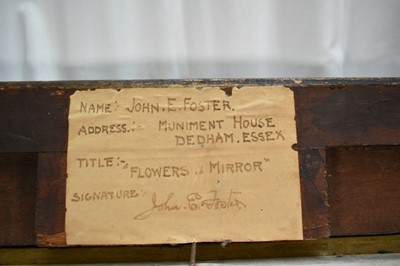 NAME:- JOHN. E. FOSTER.
ADDRESS.:- MUNIMENT HOUSE
DEDHAM. ESSEX
TITLE:- "FLOWERS .. MIRROR"
SIGNATURE:- John E. Foster